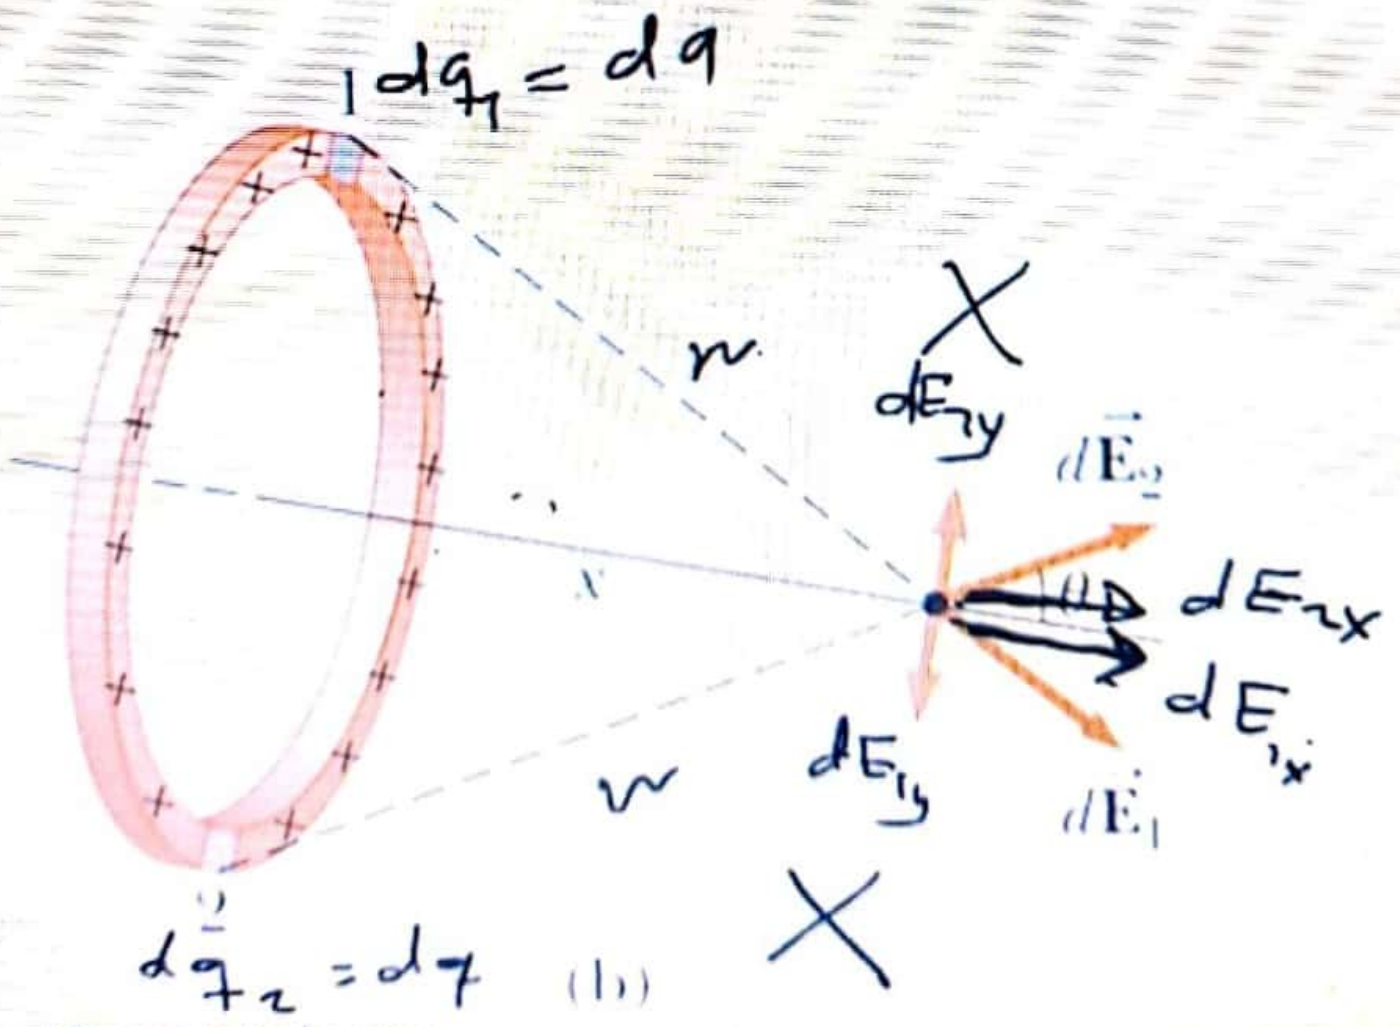 1 dq₁ = dq
r
X
dE₂y
dE⃗₂
θ
dE₂x
x
dE₁x
dE₁y
r
dE⃗₁
2
X
dq₂ = dq
(b)